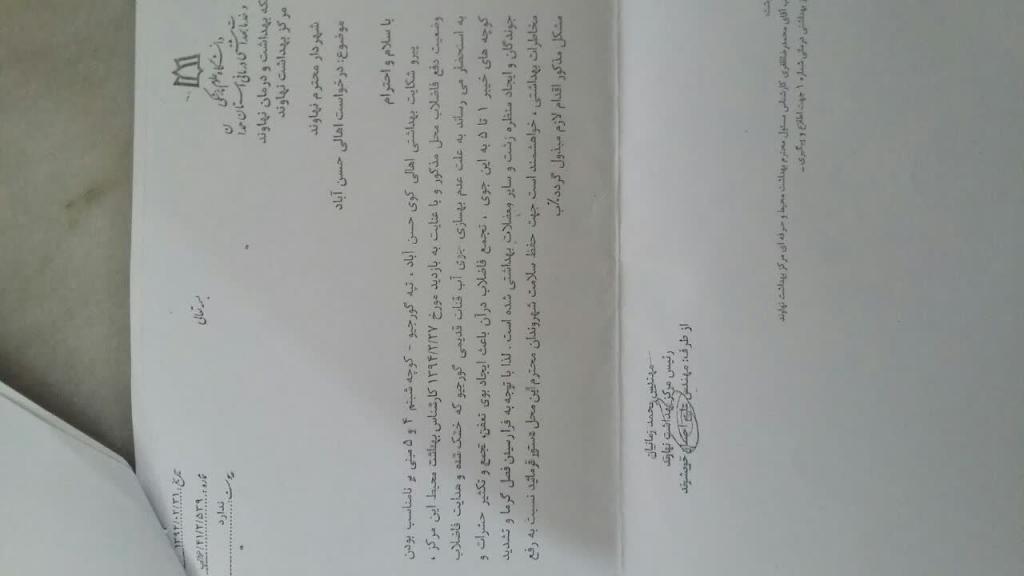 برتعالی
شبکه بهداشت و درمان نهاوند
مرکز بهداشت نهاوند
ندارد
شهردار محترم نهاوند
موضوع: درخواست اهالی حسن آباد
با سلام و احترام
پیرو شکایت بهداشتی اهالی کوی حسن آباد ، تپه گورجیو - کوچه شبنم ۴ و ۵ مبنی بر نامناسب بودن
وضعیت دفع فاضلاب محل مذکور و با عنایت به بازدید مورخ ۱۳۹۴/۲/۲۷ کارشناس بهداشت محیط این مرکز ،
به استحضار می رساند به علت عدم بهسازی جوی آب قنات قدیمی گورجیو که خشک شده و هدایت فاضلاب
کوچه های خیبر ۱ تا ۵ به این جوی ، تجمع فاضلاب درآن باعث ایجاد بوی تعفن، تجمع و تکثیر حشرات و
جوندگان و ایجاد منظره زشت و سایر معضلات بهداشتی شده است . لذا با توجه به فرارسیدن فصل گرما و تشدید
مخاطرات بهداشتی ، خواهشمند است جهت حفظ سلامت شهروندان محترم این محل دستور فرمائید نسبت به رفع
مشکل مذکور اقدام لازم مبذول گردد/ب
مهندس محمد زمانیان
رئیس مرکز بهداشت نهاوند
از طرف، مهندس
کارشناس مسئول محترم بهداشت محیط و حرفه ای مرکز بهداشت نهاوند
شماره ۱ جهت اطلاع و پیگیری -